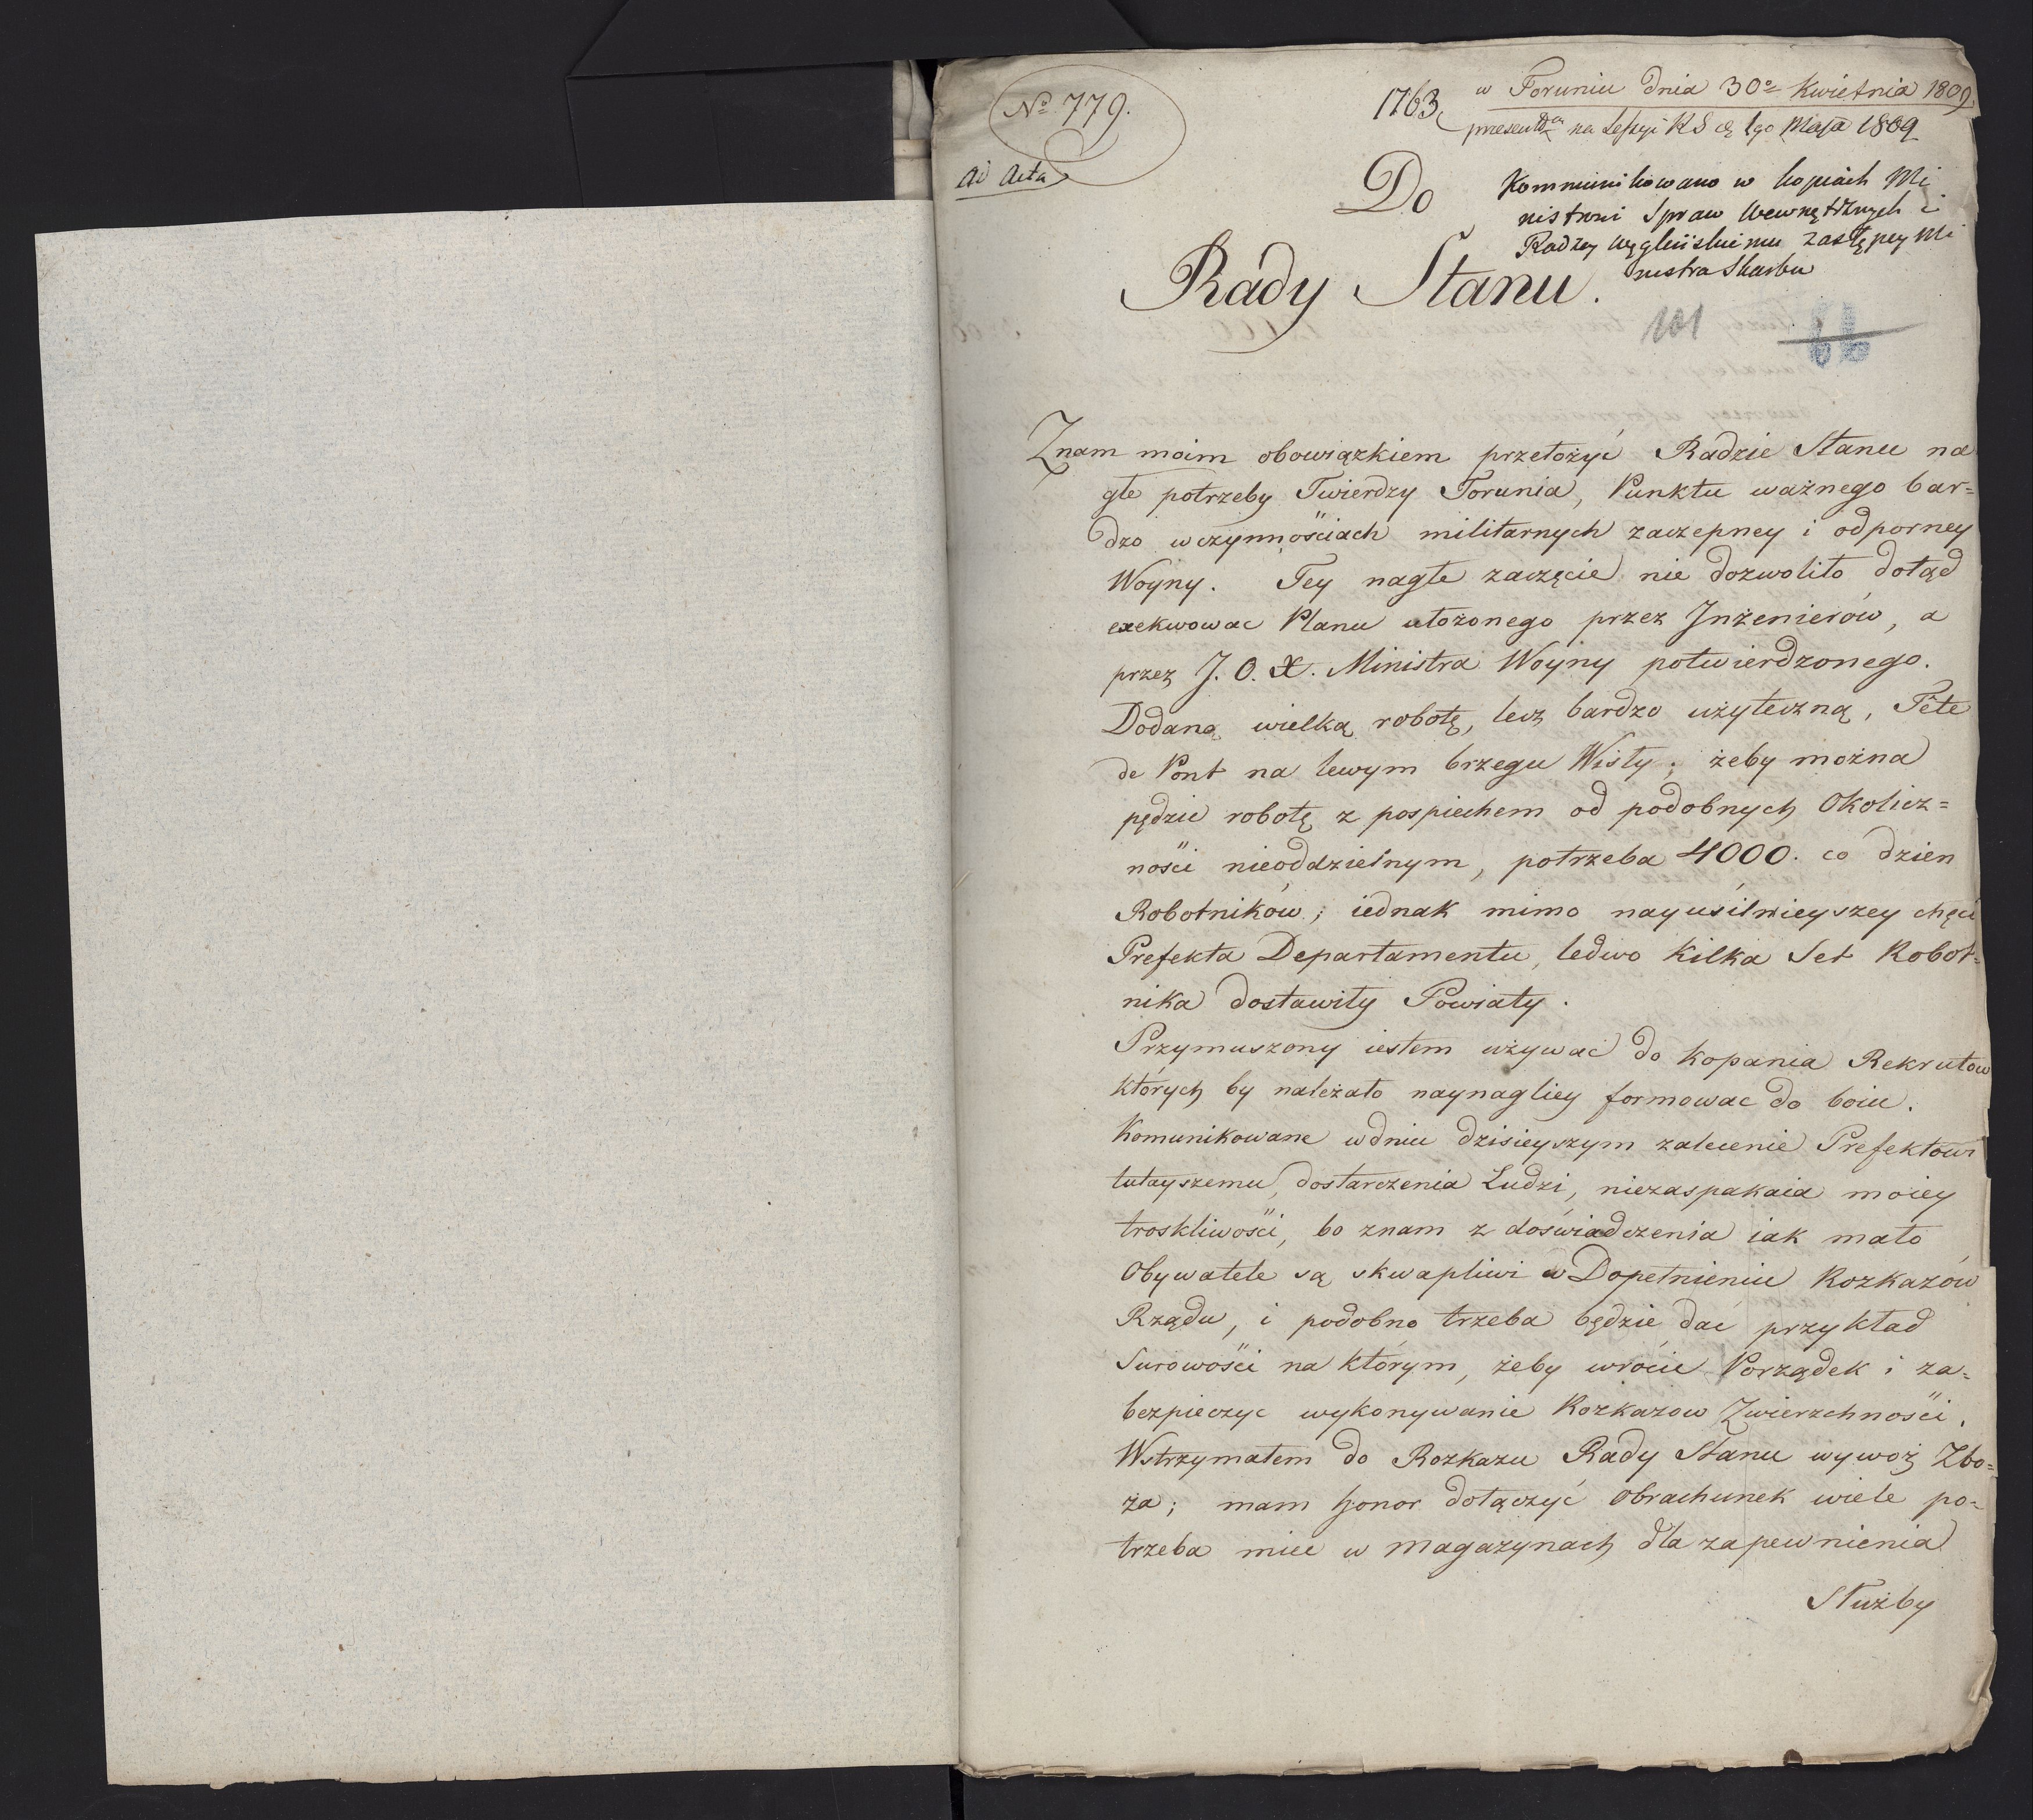 No 779.
Ad Acta
1763
w Toruniu dnia 30o Kwietnia 1809.
na Sessyi RS d. 1go Maja 1809
Do
Kommunikowano w kopiach Mi
nistrowi Spraw Wewnętrznych i
Radzcy Węgleńskiemu zastępcy Mi
nistra Skarbu
Rady Stanu.
101
Znam moim obowiązkiem przełożyć Radzie Stanu na
głe potrzeby Twierdzy Torunia, Punktu ważnego bar=
dzo w czynnościach militarnych zaczepney i odporney
Woyny. Tey nagłe zaczęcie nie dozwoliło dotąd
exekwowac Planu ułożonego przez Inżenierów, a
przez J. O. X. Ministra Woyny potwierdzonego.
Dodaną wielką robotę, lecz bardzo użyteczną, Tête
de Pont na lewym brzegu Wisły; żeby można
pędzić robotę z pospiechem od podobnych Okolicz=
ności nieoddzielnym, potrzeba 4000. co dzien
Robotników; iednak mimo nayusilnieyszey chęci
Prefekta Departamentu, ledwo kilka Set Robot=
nika dostawiły Powiaty.
Przymuszony iestem używać do kopania Rekrutow
których by należało naynagliey formowac do boiu.
Komunikowane w dniu dzisieyszym zalecenie Prefektowi
tutayszemu, dostarczenia Ludzi, niezaspakaia moiey
troskliwości, bo znam z doświadczenia iak mało
Obywatele są skwapliwi w Dopełnieniu Rozkazów
Rządu, i podobno trzeba będzie dać przykład
Surowości na którym, żeby wrócić Porządek i za=
bezpieczyc wykonywanie Rozkazow Zwierzchności.
Wstrzymałem do Rozkazu Rady Stanu wywoż Zbo=
ża; mam honor dołączyć Obrachunek wiele po=
trzeba miec w magazynach dla zapewnienia
Służby